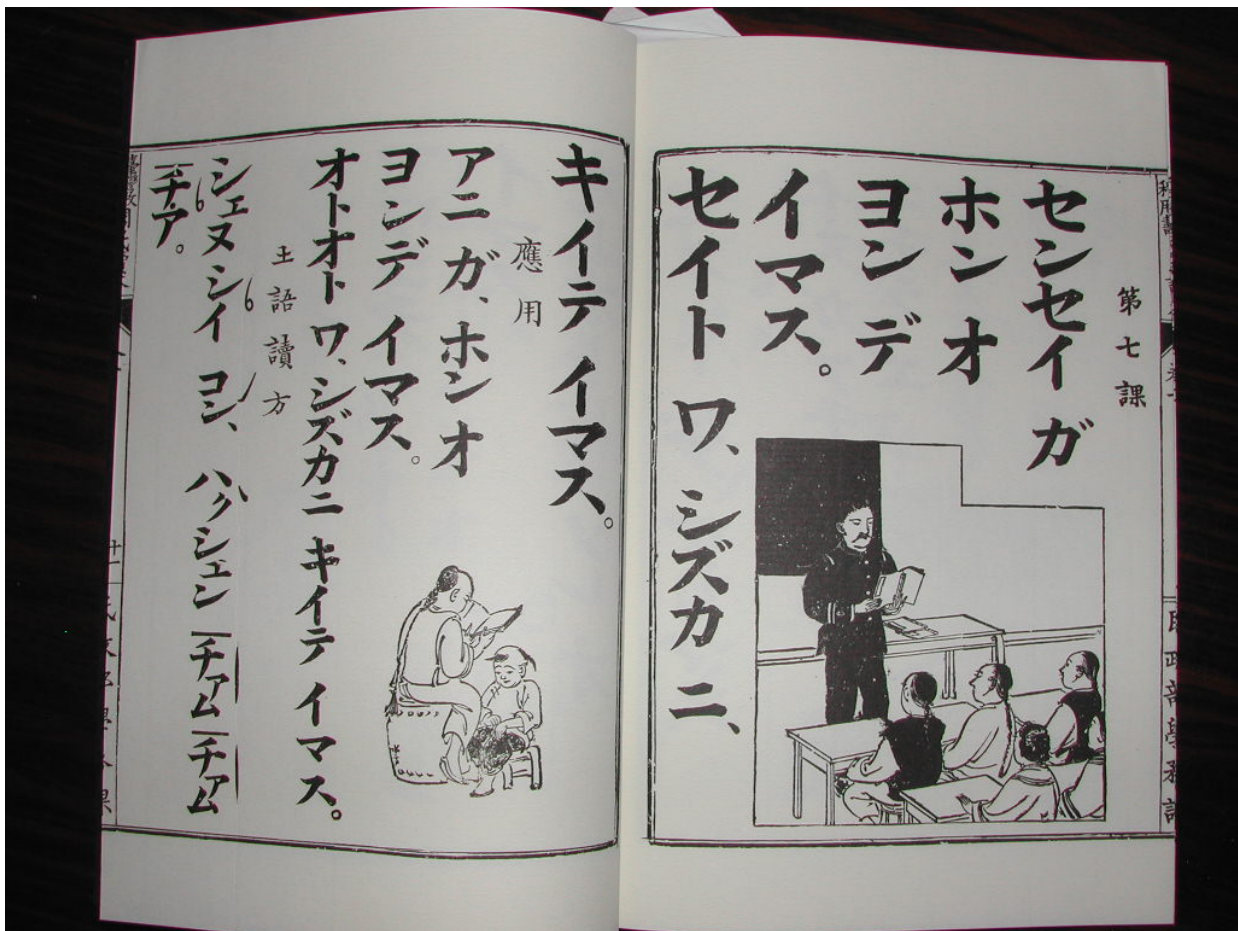 第七課
センセイ ガ
ホン オ
ヨン デ
イマス。
セイト ワ、シズカ ニ、
キイテ イマス。
應用
アニ ガ、ホン オ
ヨンデ イマス。
オトオト ワ、シズカニ キイテ イマス。
土語讀方
シェヌ シイ ヨシ、ハク シェン チァム チァム
チア。
民政部學務課